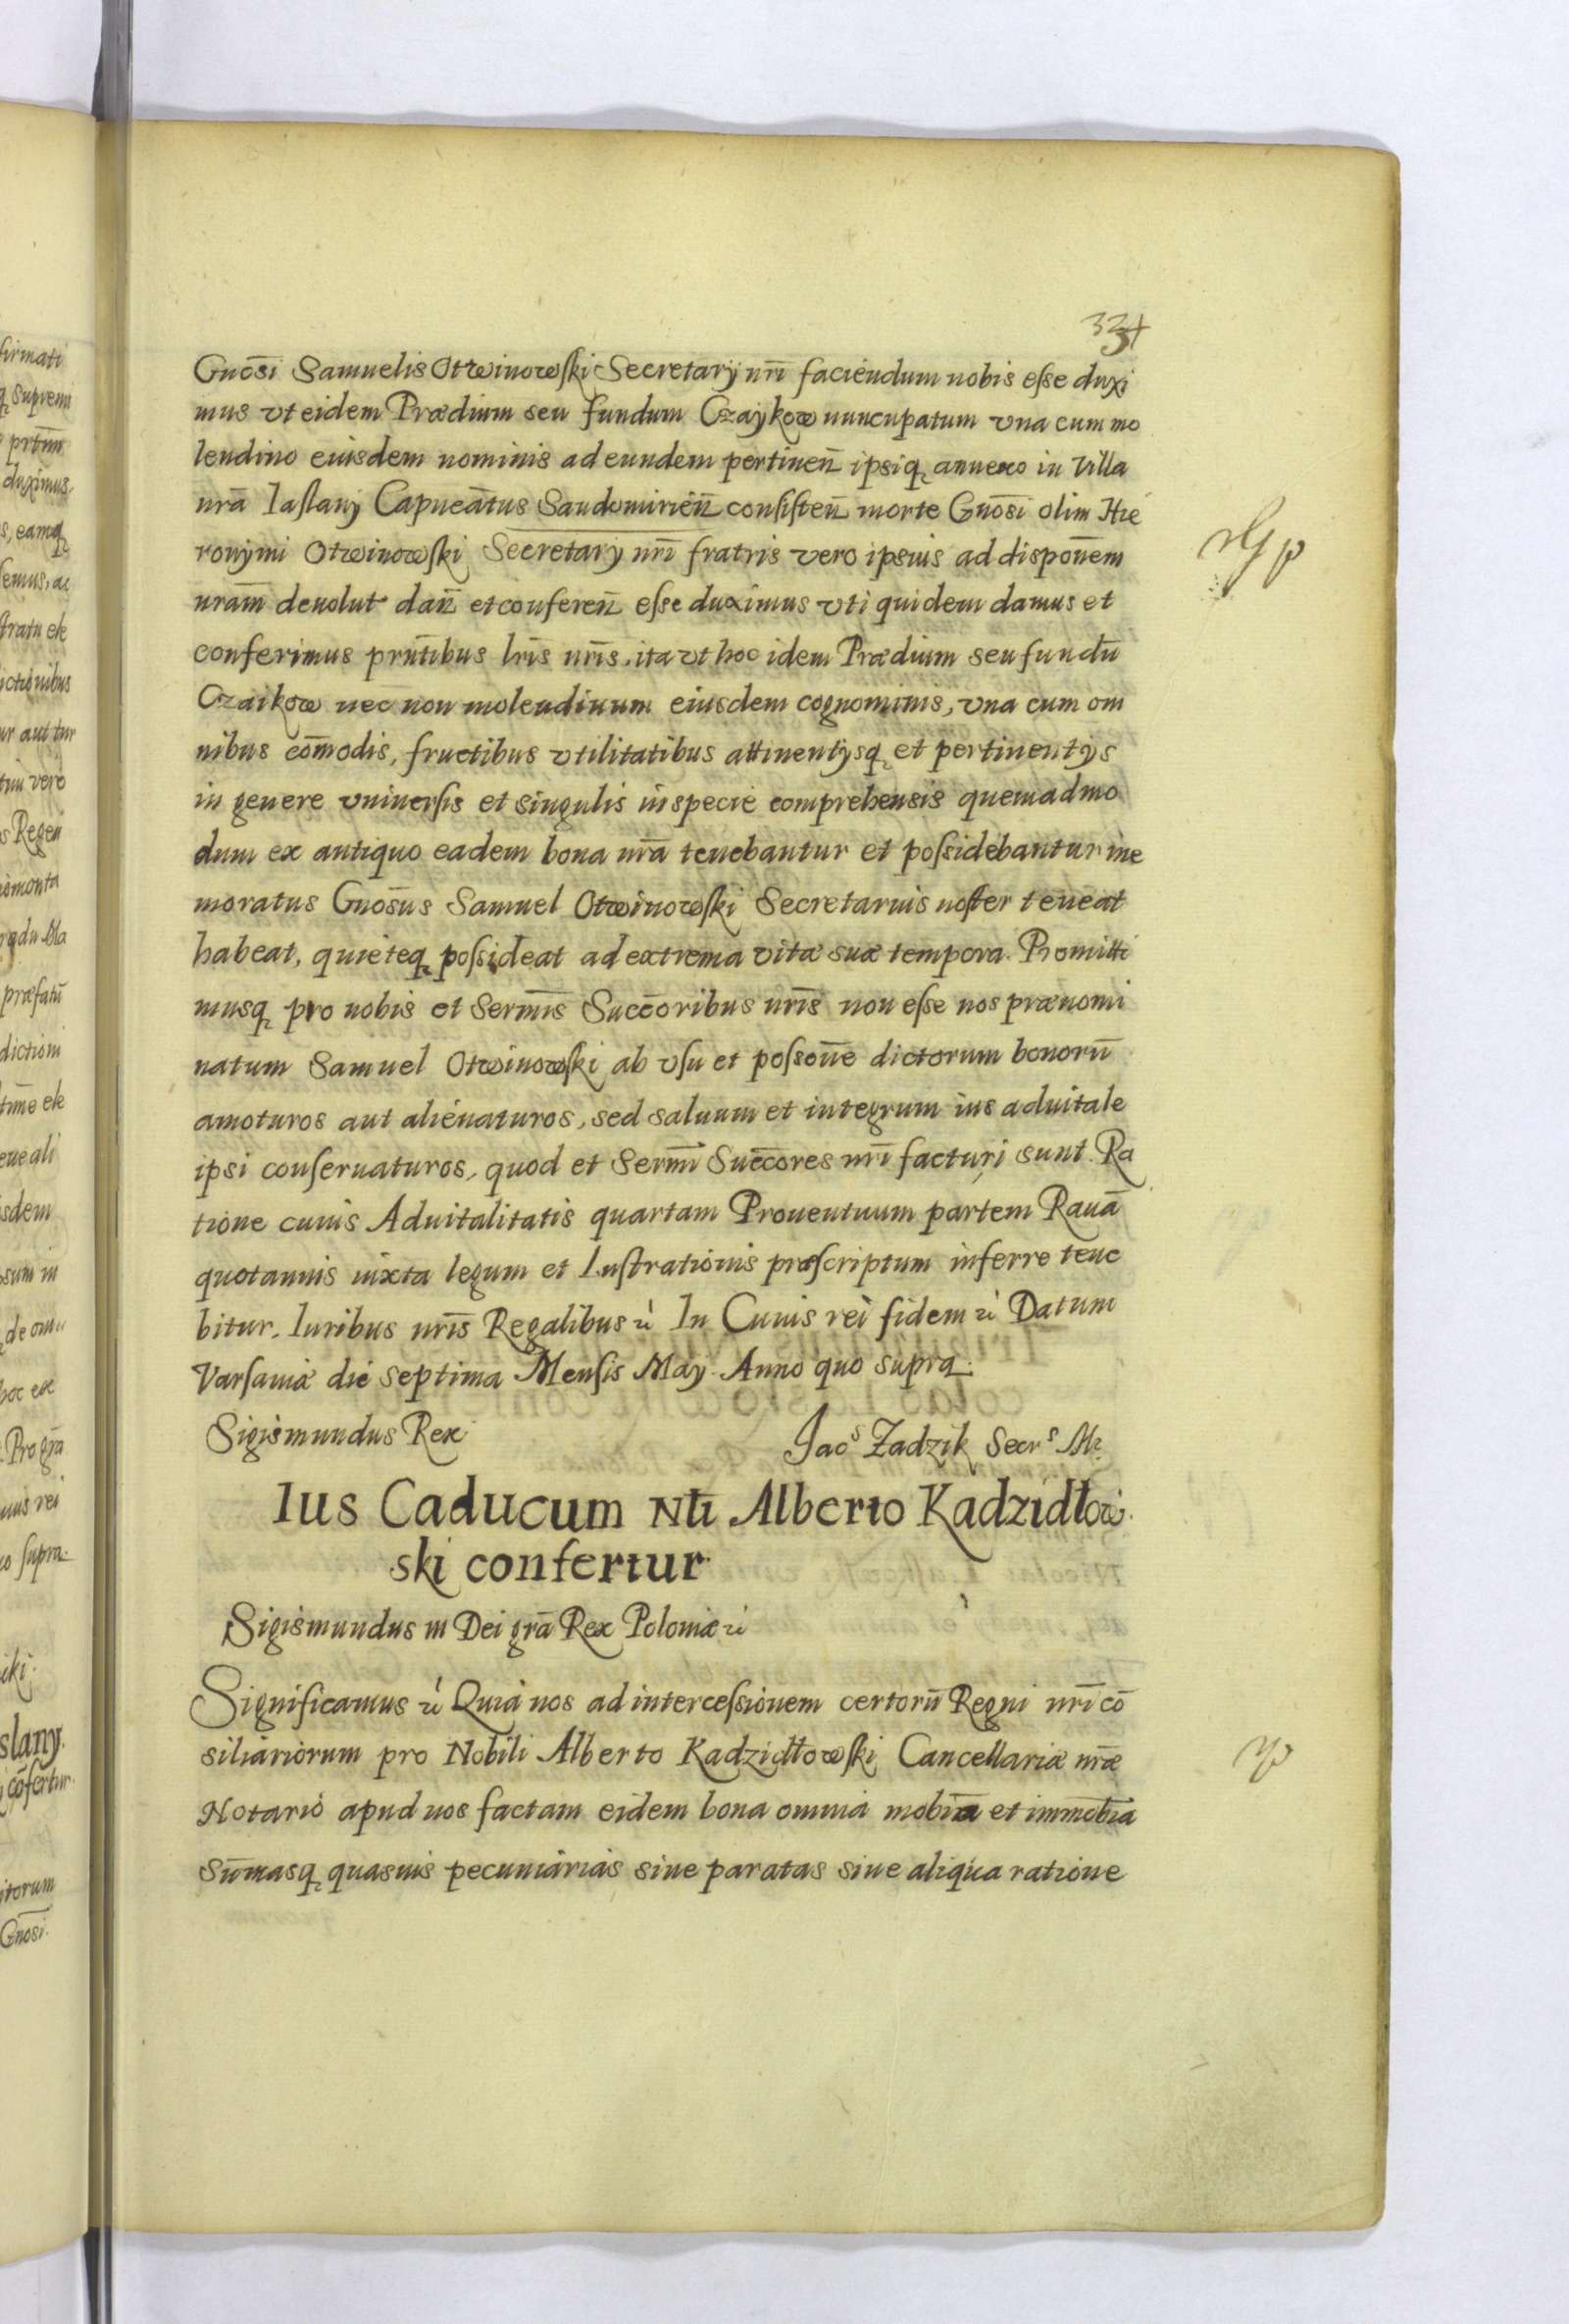 334
Gnōsi Samuelis Otwinowski Secretarÿ nr̄i faciendum nobis eſse duxi
mus vt eidem Prædium seu fundum Czaÿkow nuncupatum vna cum mo
lendino eiusdem nominis ad eundem pertinen̄ ipsiq, annexo in Villa
nrā Iaſlany Capneātus Sandomirien̄ consiſten̄ morte Gnōsi olim Hie
ronÿmi Otwinowſki Secretarÿ nr̄i fratris vero ipsius ad dispon̄em
nram̄ deuolut dan̄ et conferen̄ eſse duximus vti quidem damus et
conferimus prn̄tibus lrīs nrīs, ita vt hoc idem Prædium seu fundū
Czaikow nec non molendinum eiusdem cognominis, vna cum om
nibus com̄odis, fructibus vtilitatibus attinentÿsq, et pertinentÿs
in genere vniuerſis et singulis in specie comprehensis quemadmo
dum ex antiquo eadem bona nrā tenebantur et poſsidebantur me
moratus Gnōsus Samuel Otwinowſki Secretarius noſter teneat
habeat, quieteq, poſsideat ad extrema vitæ suæ tempora. Promitti
musq, pro nobis et Serm̄is Succ̄oribus nrīs non eſse nos prænomi
natum Samuel Otwinowſki ab vſu et poſson̄e dictorum bonorū
amoturos aut alienaturos, sed saluum et integrum ius aduitale
ipsi conſeruaturos, quod et Serm̄i Succ̄ores nr̄i facturi sunt. Ra
tione cuius Aduitalitatis quartam Prouentuum partem Rauā
quotannis iuxta legum et Luſtrationis præſcriptum inferre tene
bitur. Iuribus nrīs Regalibus ꝛc̀ In Cuius rei fidem ꝛc̀ Datum
Varſauiæ die septima Menſis Maÿ. Anno quo supra.
Sigismundus Rex
Jacˢ Zadzik Secrˢ Mr.
Ius Caducum Nl̄i Alberto Kadzidłow
ski confertur
Sigismundus III Dei grā Rex Poloniæ ꝛc̀
Significamus ꝛc̀ Quia nos ad interceſsionem certorū Regni nr̄i cō
siliariorum pro Nobili Alberto Kadzidłowſki Cancellariæ nrǣ
Notario apud nos factam eidem bona omnia mobīa et immobīa
Sum̄asq, quasuis pecuniarias siue paratas siue aliqua ratione